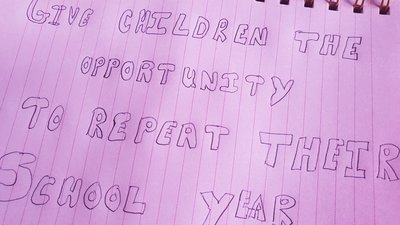 GIVE CHILDREN THE
OPPORTUNITY
TO REPEAT THEIR
SCHOOL YEAR